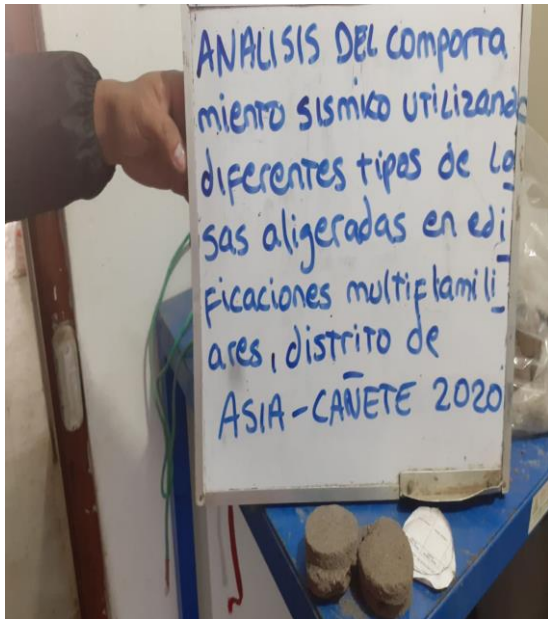 ANALISIS DEL comporta
miento sismico utilizando
diferentes tipos de lo
sas aligeradas en edi
ficaciones multiflamili
ares, distrito de
ASIA-CAÑETE 2020